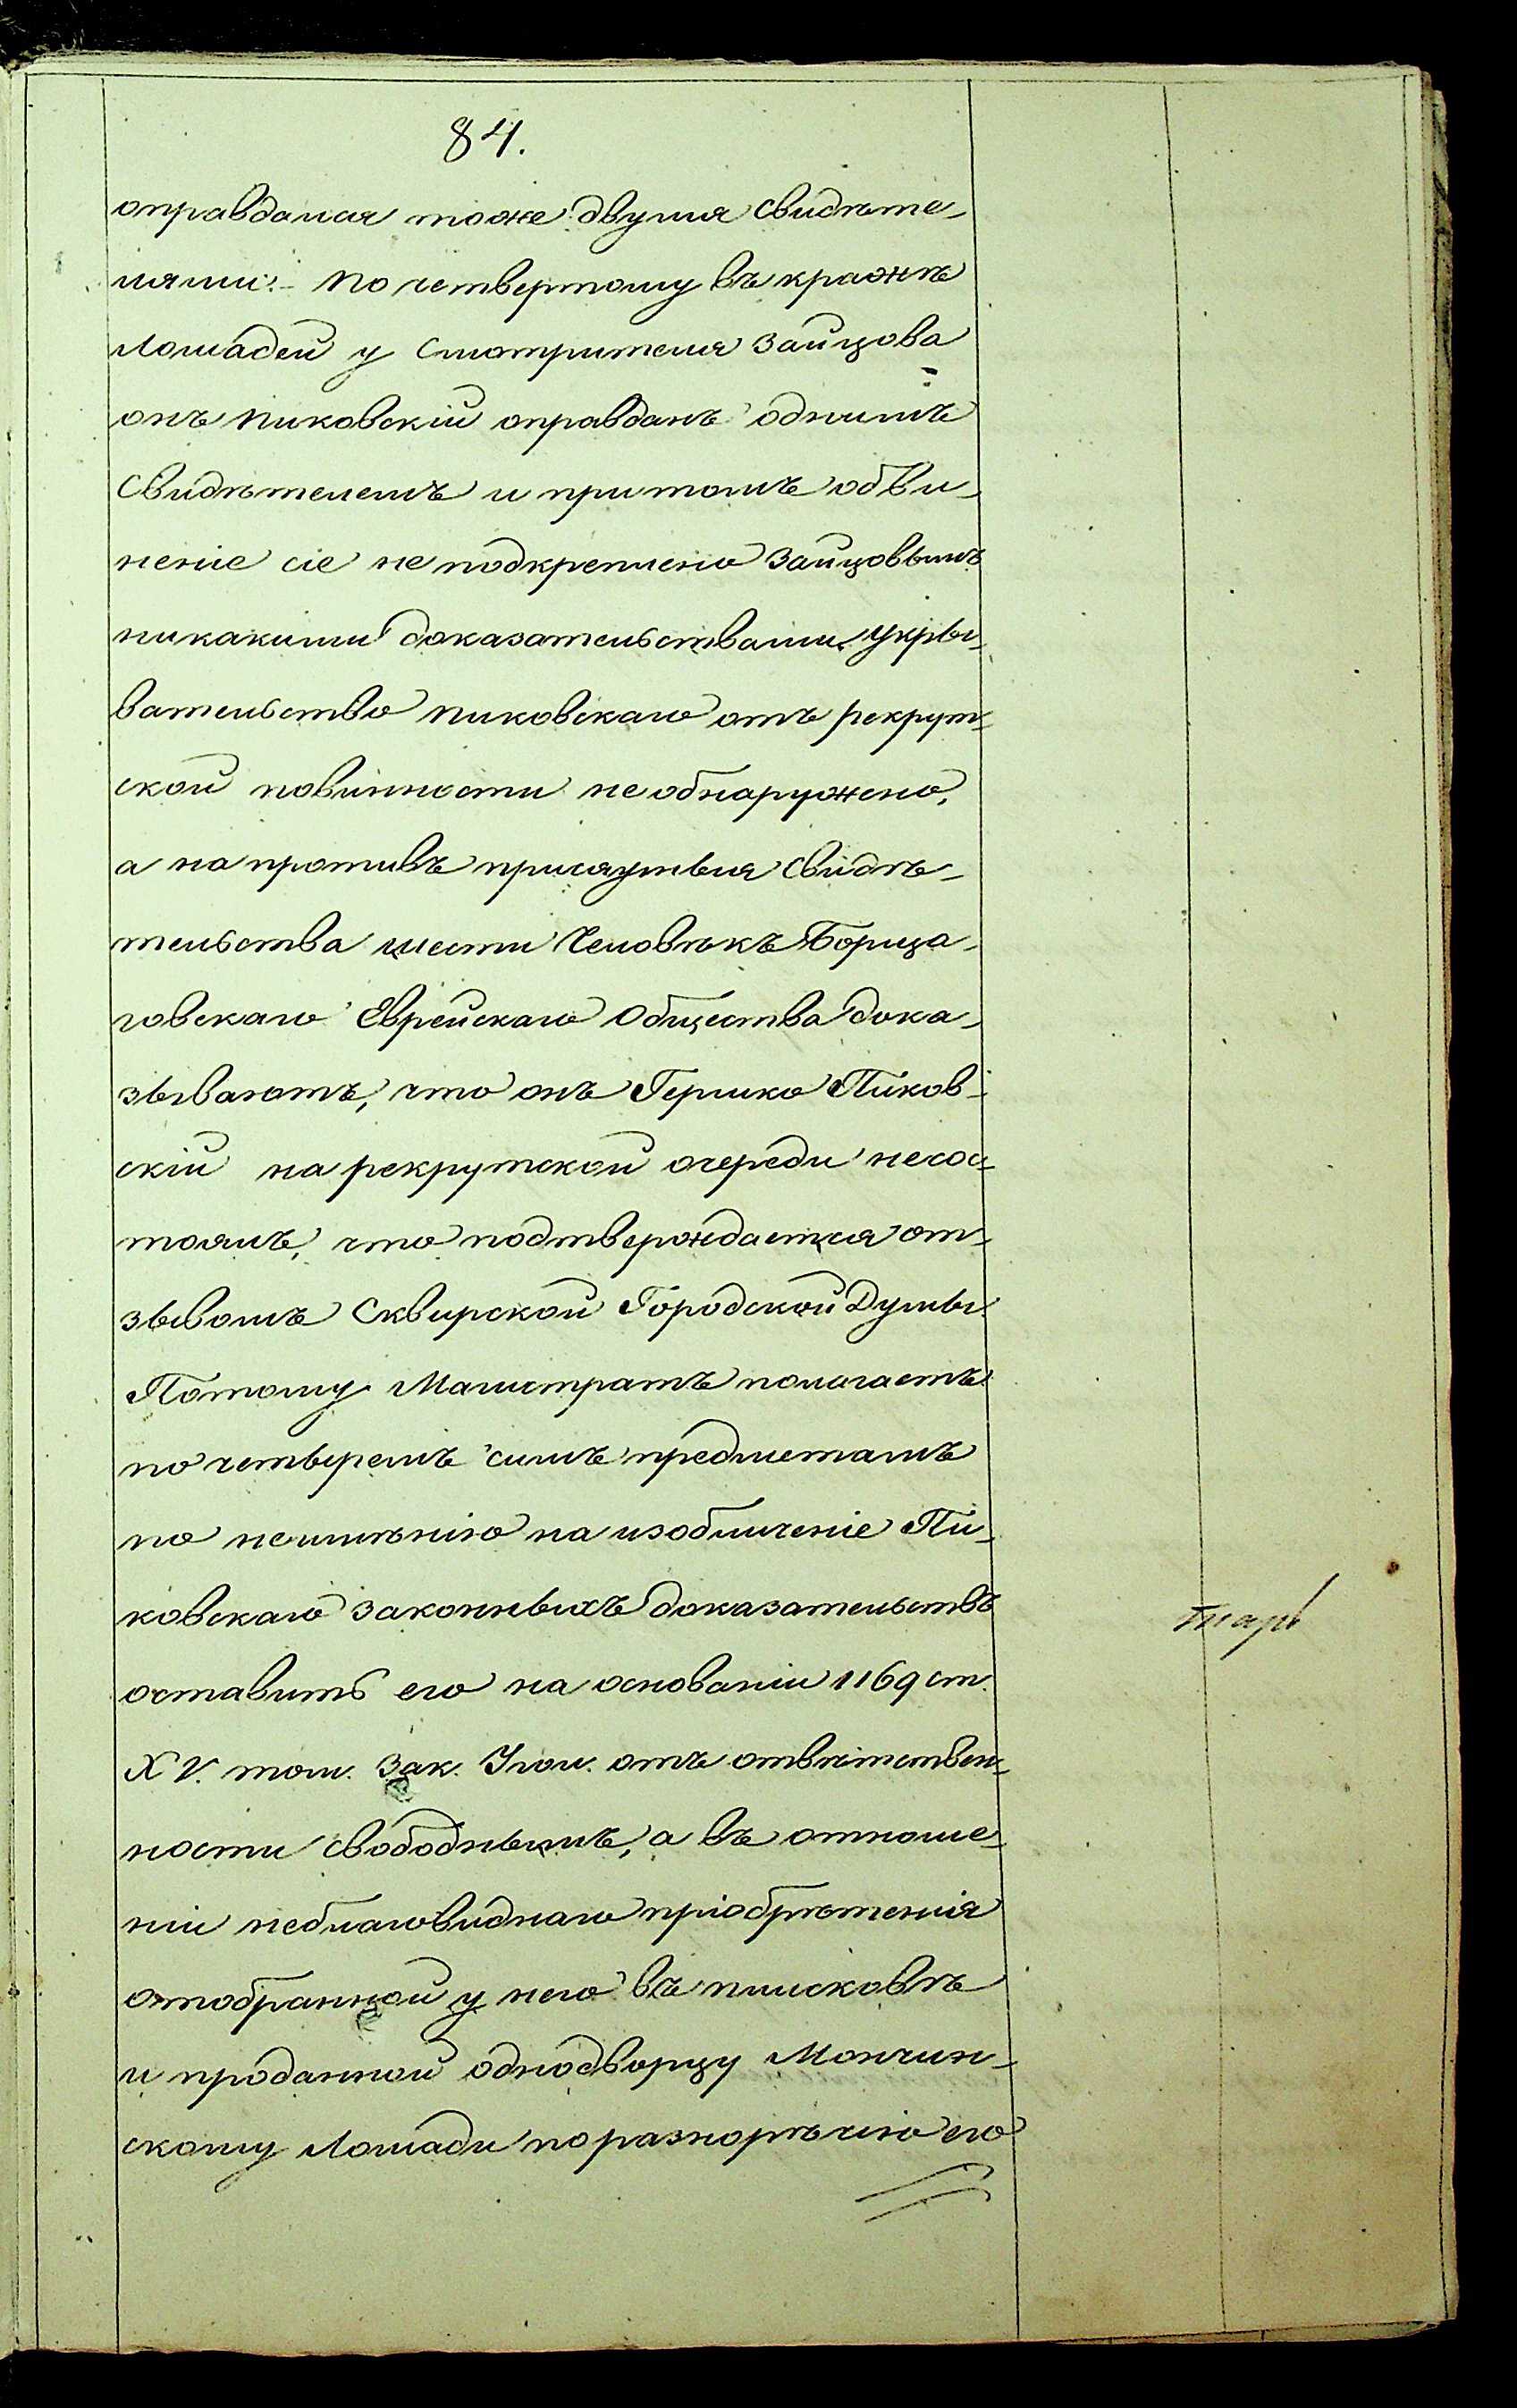 84.
оправдался тоже двумя свидѣте-
лями. По четвертому въ кражѣ
лошадей у Смотрителя Зайцова
онъ Пиковскій оправданъ однимъ
свидѣтелемъ и притомъ обви-
неніе сіе не подкреплено Зайцовымъ
никакими доказательствами, укры-
вательство Пиковскаго отъ рекрут-
ской повинности не обнаружено,
а на противъ присяжныя свидѣ-
тельства шести человѣкъ Борща-
говскаго Еврейскаго Общества дока-
зываютъ, что онъ Гершко Пиков-
скій на рекрутской очереди несос-
тоялъ, что подтверждается от-
зывомъ Сквирской Городской Думы.
Потому Магистратъ полагаетъ
по четыремъ симъ предметамъ
по неимѣнію на изобличеніе Пи-
ковскаго законныхъ доказательствъ
оставить его на основаніи 1169 ст.
XV. том. Зак. Угол. отъ отвѣтствен-
ности свободнымъ, а въ отноше-
ніи неблаговиднаго пріобрѣтенія
отобранной у него въ Плисковѣ
и проданной однодворцу Мончин-
скому лошади по разнорѣчію его
тарь